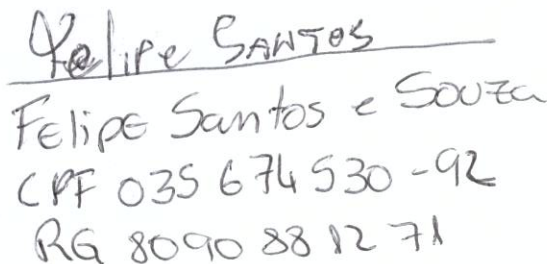 Felipe SANTOS
FEliPE Santos e Souza
CPF 035 674 530-92
RG 8090 88 12 71